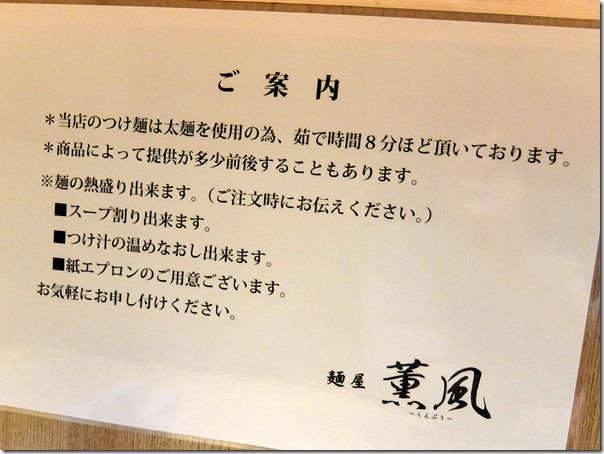 ご案内
＊当店のつけ麺は太麺を使用の為、茹で時間８分ほど頂いております。
＊商品によって提供が多少前後することもあります。
※麺の熱盛り出来ます。（ご注文時にお伝えください。）
■スープ割り出来ます。
■つけ汁の温めなおし出来ます。
■紙エプロンのご用意ございます。
お気軽にお申し付けください。
麺屋 薫風
～くんぷう～